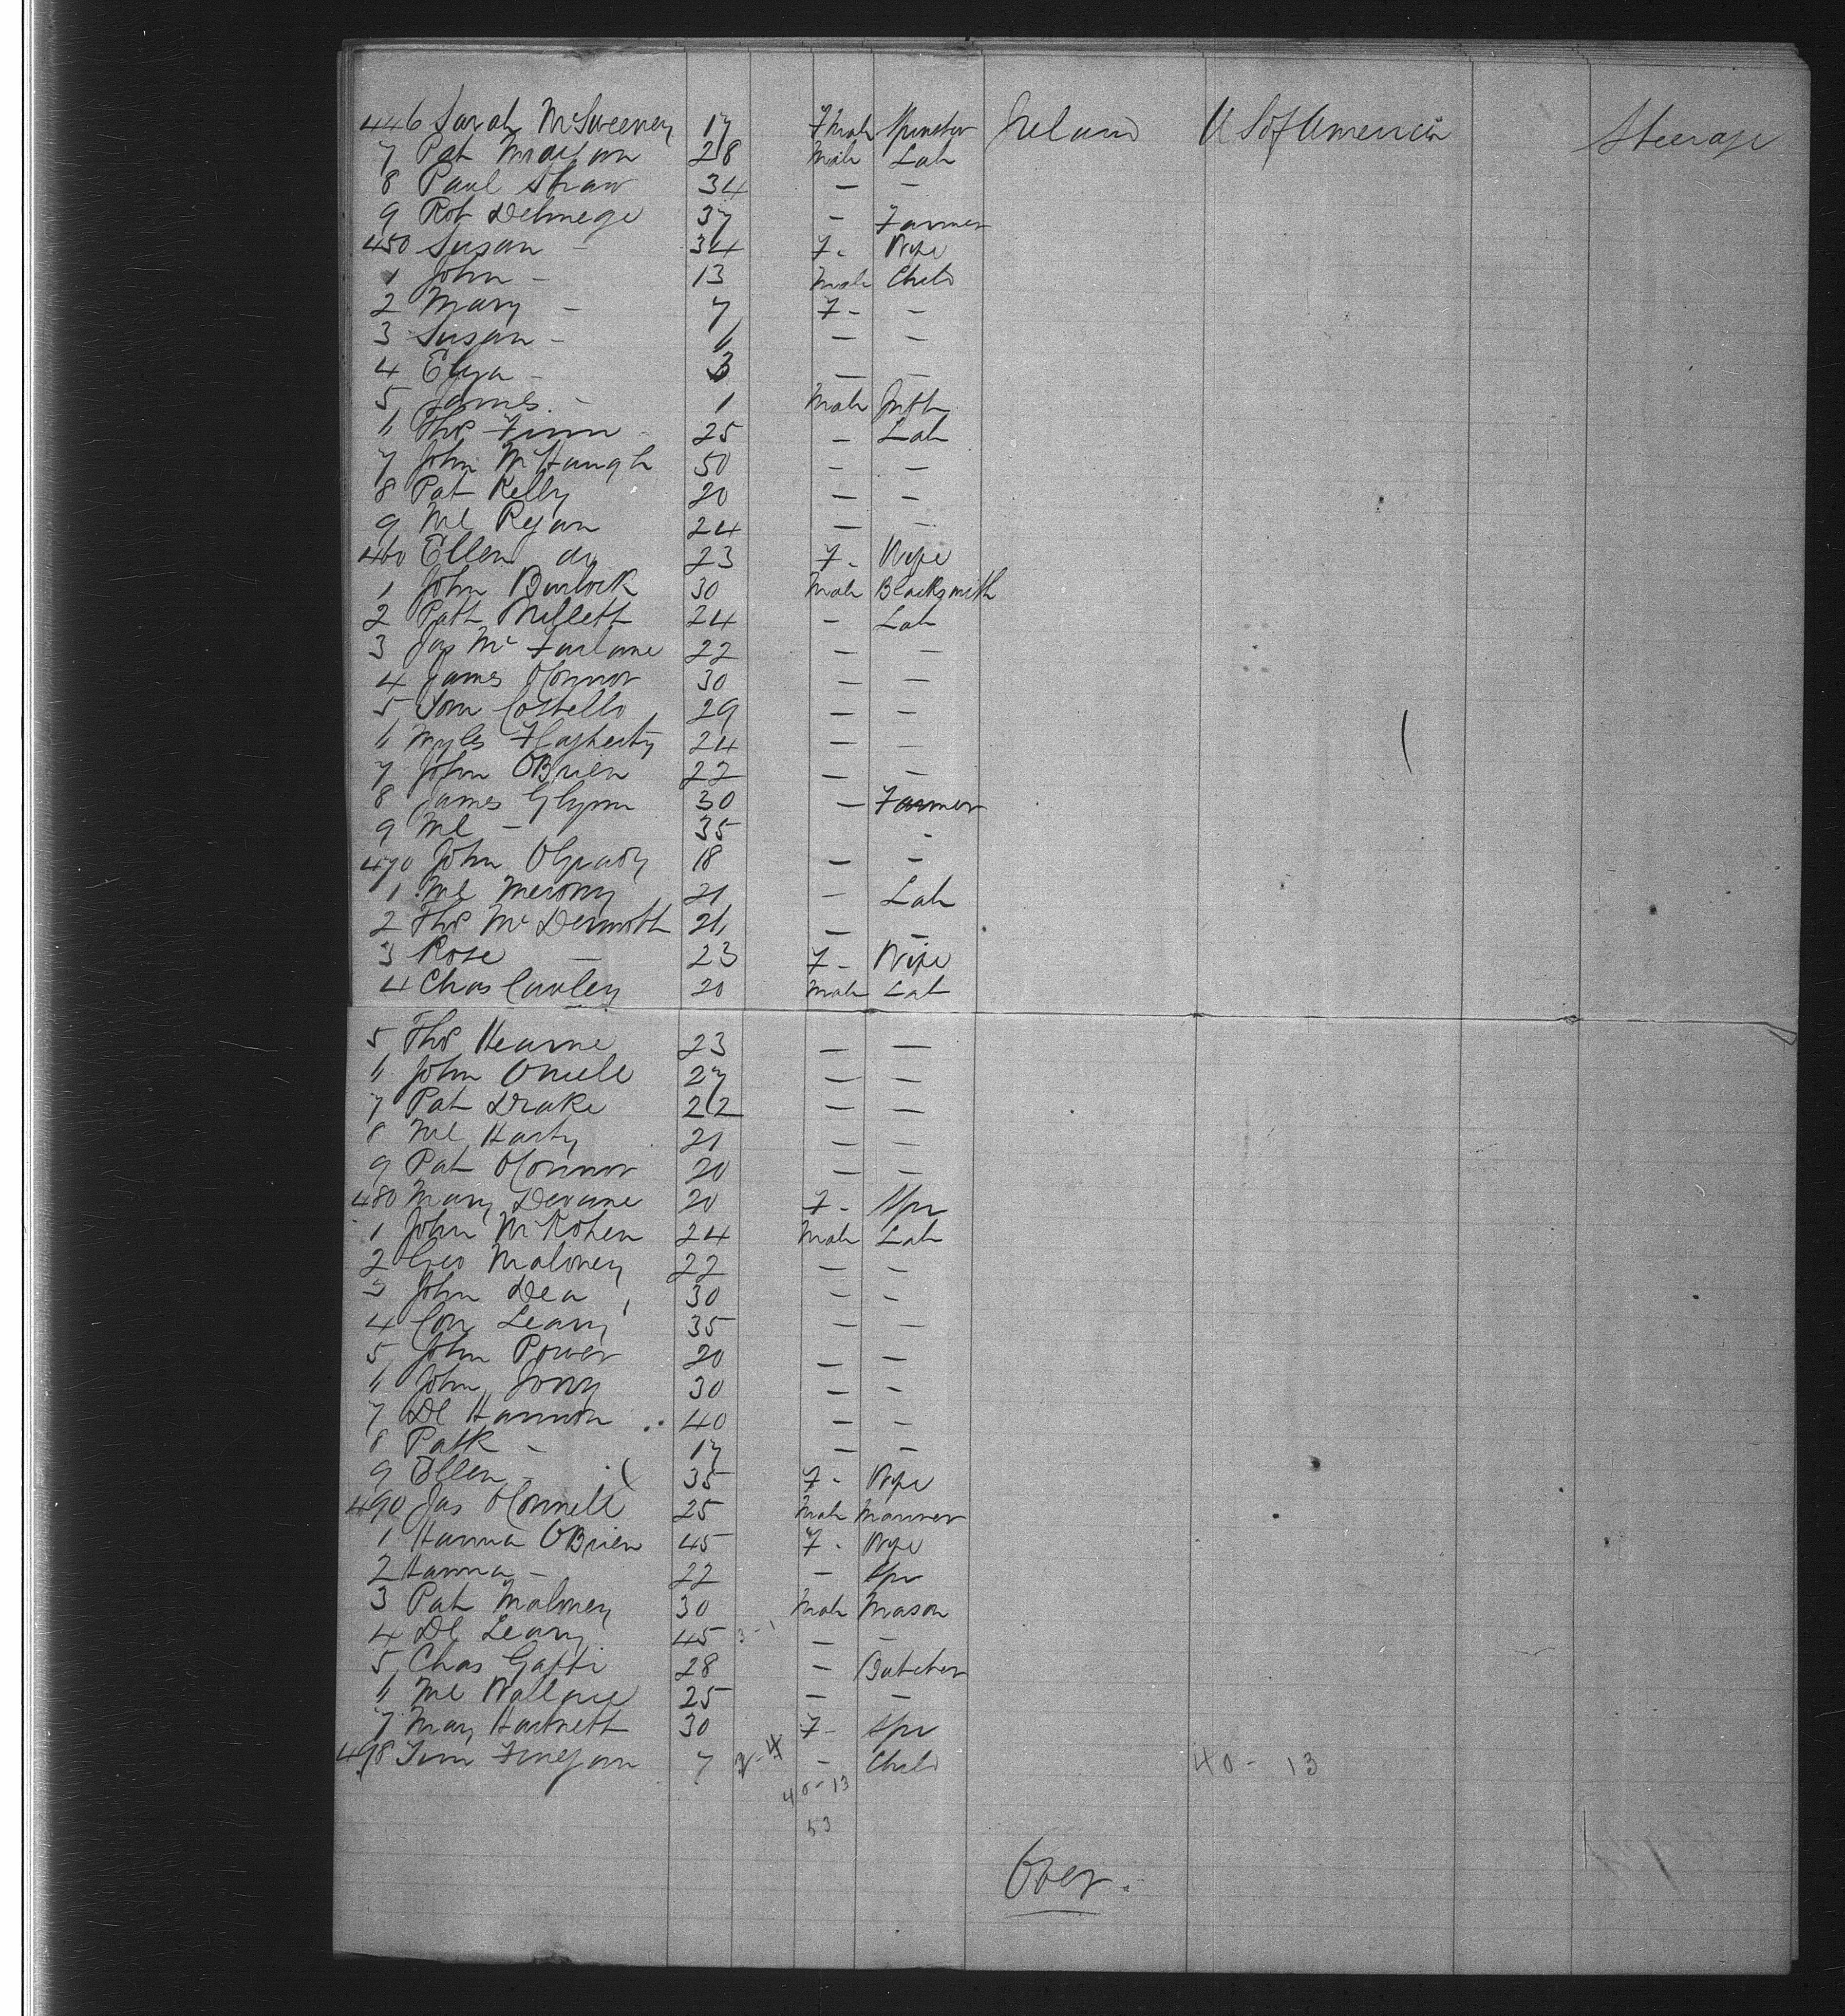 446 Sarah McSweeney 17 Fmale Spinster Ireland U S of America Steerage
7 Pat 28 Male Lab
8 Paul Shaw 34 — —
9 Rob Delmege 37 - Farmer
450 Susan - 34 F- Wife
1 John - 13 Male Child
2 Mary - 7 F- -
3 Susan - 6 — —
4 Eliza - 3 — —
5 James - 1 Male Inft
6 Thos Finn 25 - Lab
7 John McHaugh 50 — —
8 Pat Kelly 20 — —
9 Ml Ryan 24 — -
460 Ellen do 23 F- Wife
1 John Burlock 30 Male Blacksmith
2 Patk Millett 24 - Lab
3 Jas Mc Farlane 22 — —
4 James OConnor 30 — —
5 Tom Costello 29 — —
6 Myles Flagherty 24 — —
7 John OBrien 22 — —
8 James Glynn 30 — Farmer
9 Ml - 35 -
470 John OGrady 18 — -
1 Ml Merony 21 - Lab
2 Thos McDermott 26 — —
3 Rose — 23 F- Wife
4 Chas Cawley 20 Male Lab
5 Thos Hearne 23 — —
6 John ONeill 27 — —
7 Pat Drake 22 — —
8 Ml Harty 21 — —
9 Pat OConnor 20 — —
480 Mary Devane 20 F- Spr
1 John McKohen 24 Male Lab
2 Geo Maloney 22 — -
3 John Dea 30 - -
4 Con Leary 35 — —
5 John Power 20 — —
6 John Jony 30 — -
7 Dl Hannon 40 — -
8 Patk - 17 — —
9 Ellen - 35 F- Wife
490 Jas OConnell 25 Male Mariner
1 Hanna OBrien 45 F- Wife
2 Hanna - 22 - Spr
3 Pat Maloney 30 Male Mason
4 Dl Leary 45 3-1 — —
5 Chas Gaffi 28 - Butcher
6 Ml Wallace 25 — —
7 Mary Hartnett 30 F- Spr
498 Tim Finegan 7 - Child 40 - 13
40-13
53
Over.